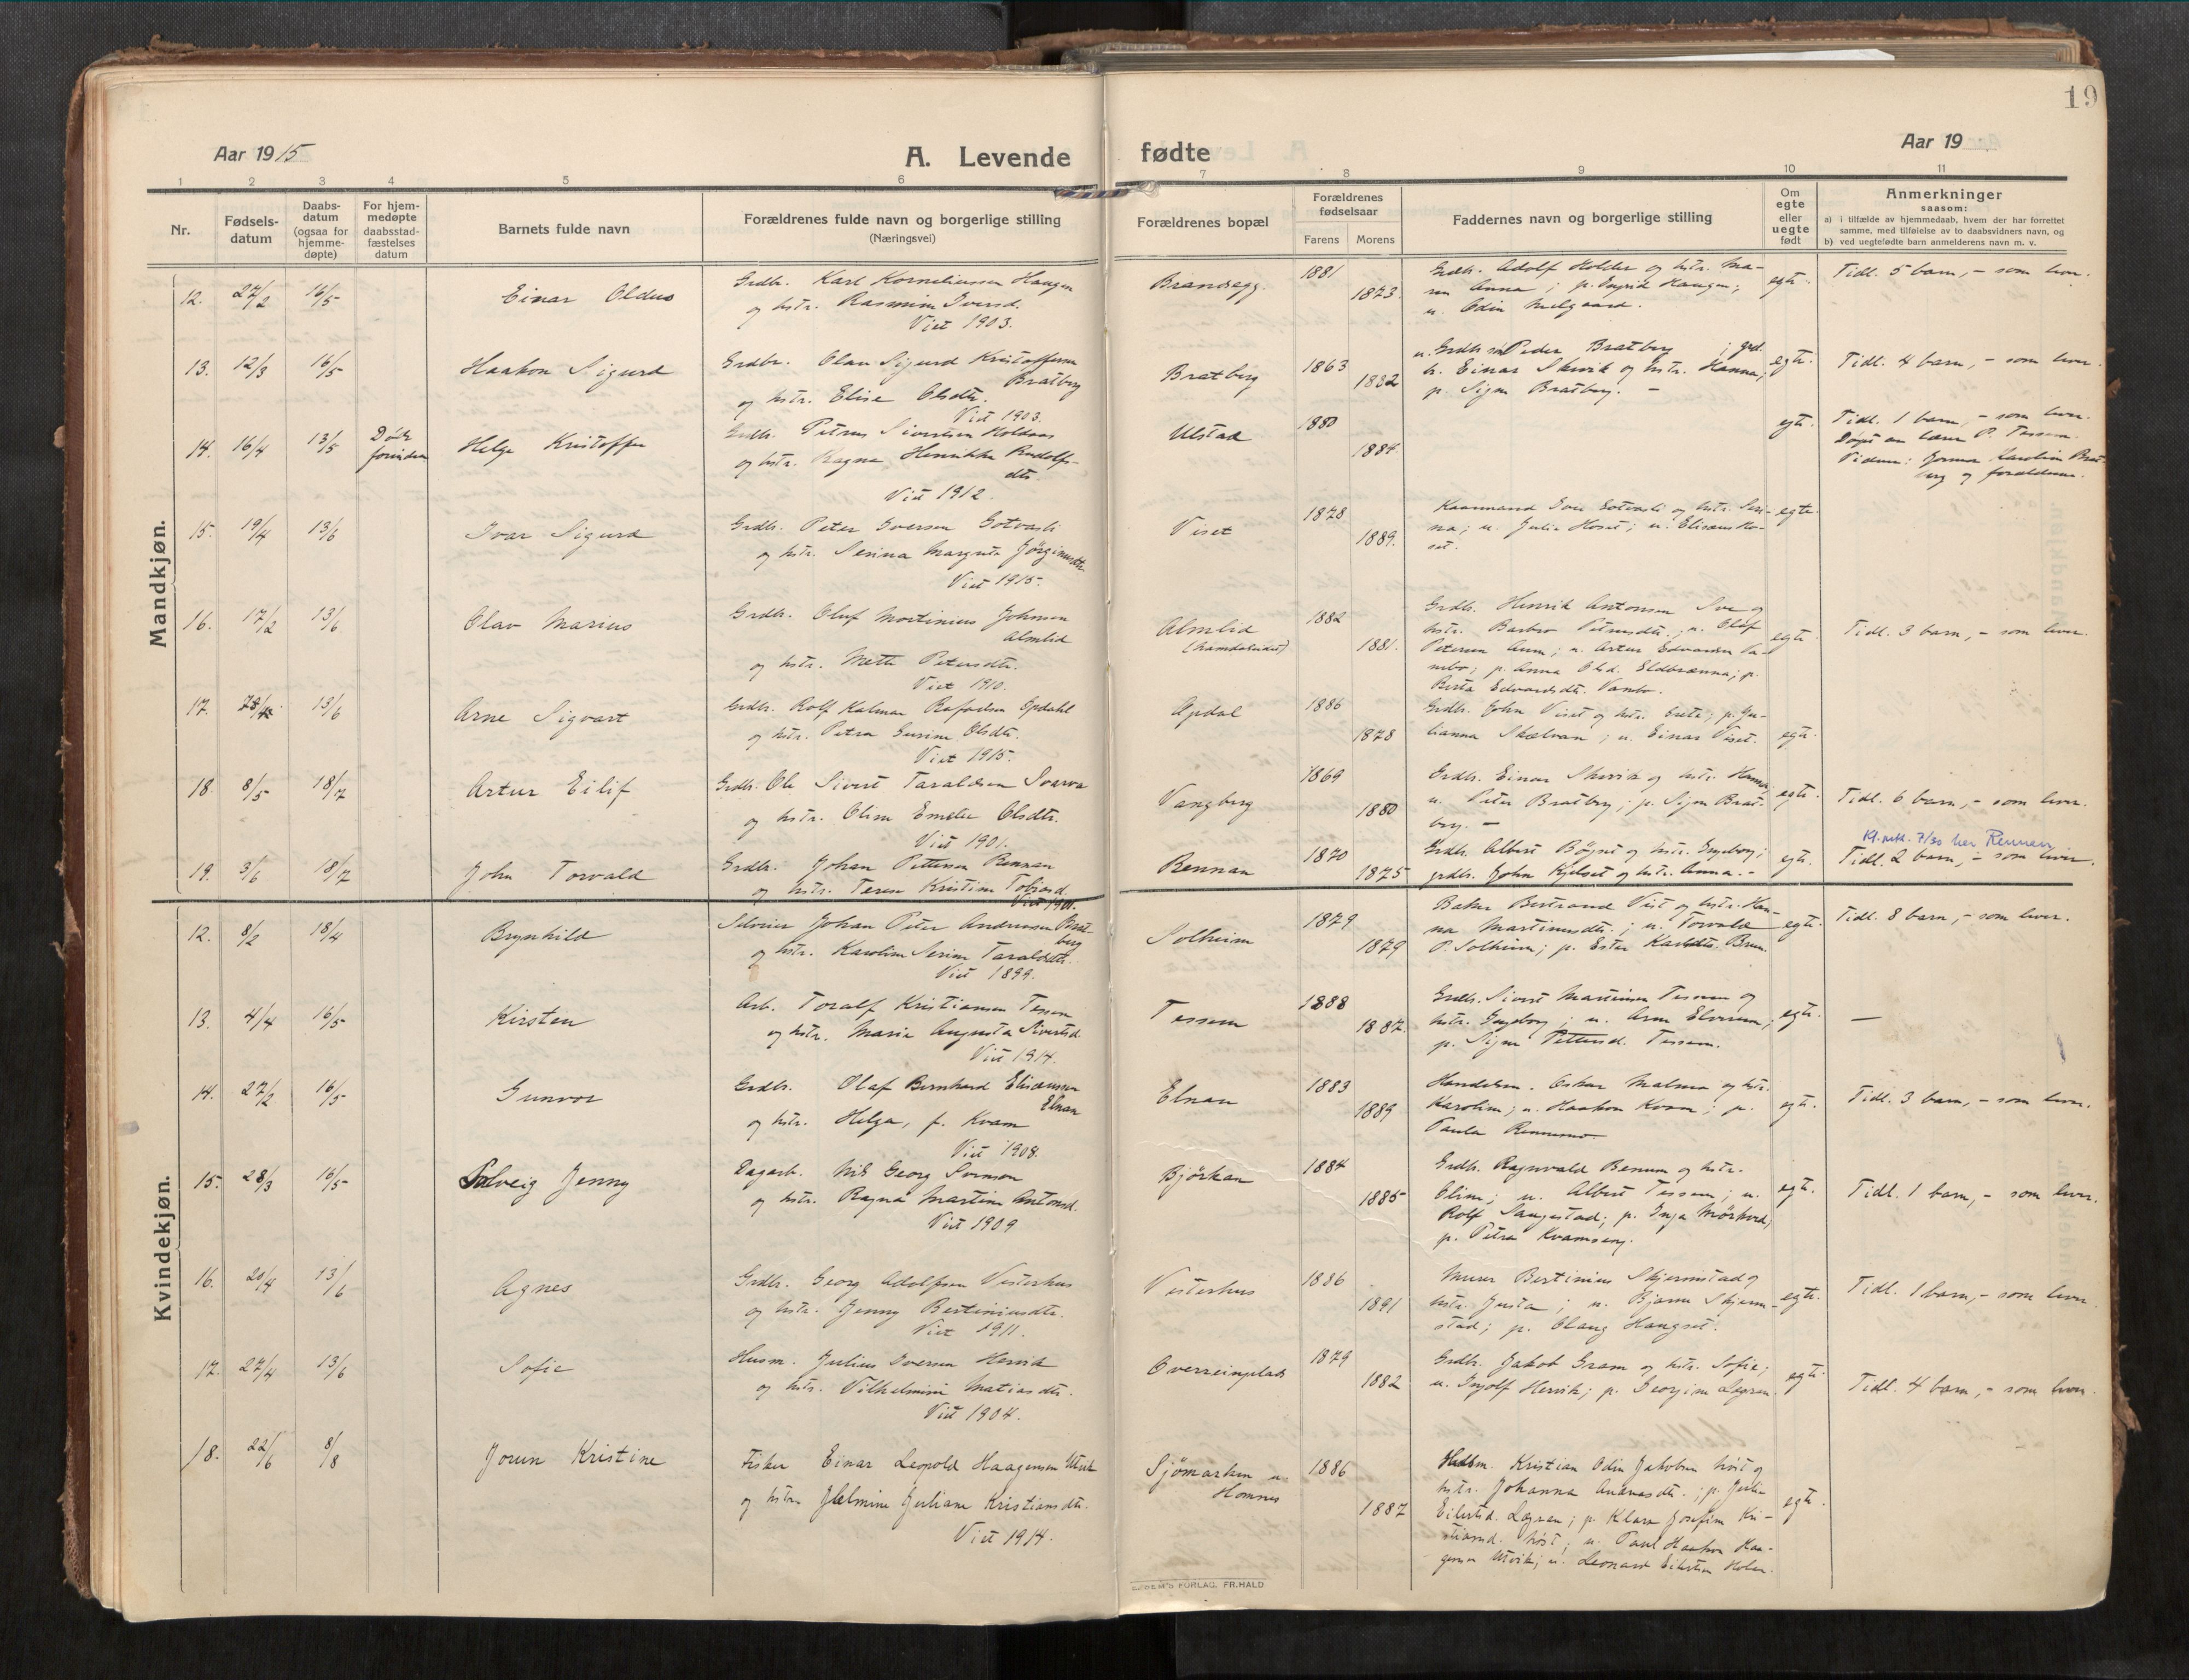 19
Aar 1915
A. Levende fødte
Aar 19
1 2 3 4 5 6 7 8 9 10 11
Nr.
Fødsels-
datum
Daabs-
datum
(ogsaa for
hjemme-
døpte)
For hjem-
medøpte
daabsstad-
fæstelses
datum
Barnets fulde navn
Forældrenes fulde navn og borgerlige stilling
(Næringsvei)
Forældrenes bopæl
Forældrenes
fødselsaar
Farens Morens
Faddernes navn og borgerlige stilling
Om
egte
eller
uegte
født
Anmerkninger
saasom:
a) i tilfælde av hjemmedaab, hvem der har forrettet
samme, med tilføielse av to daabsvidners navn, og
b) ved uegtefødte barn anmelderens navn m. v.
Mandkjøn.
12. 27/2 16/5 Einar Oldus
Grdb. Karl Korneliussen Haugen
og hstr. Rasmine Iversd.
Viet 1903.
Brandsegg. 1881 1873.
Grdb. Adolf Holder og hstr. Ma-
ren Anna; p. Ingrid Haugen;
u. Odin Melgaard.
egte. Tidl. 5 barn, - som lever.
13. 12/3 16/5 Haakon Sigurd
Grdbr. Olav Sigurd Kristoffersen
Bratberg
og hstr. Elise Olsdtr.
Viet 1903.
Bratberg 1863 1882
u. Grdbs søn Peder Bratberg; grd.
b. Einar Skevik og hstr. Hanna;
p. Signe Bratberg. -
egte. Tidl. 4 barn, - som lever.
14. 16/4 13/5 Død forinden Helge Kristoffer
Grdb. Petrus Sivertsen Moldaas
og hstr. Ragna Henrikke Rudolfs-
dtr.
Viet 1912.
Ulstad 1880 1884.
egt. Tidl. 1 barn, - som lever.
Døpt av lærer P. Tessem.
Vidner: Karoline Brat-
berg og forældrene.
15. 19/4 13/6 Ivar Sigurd
Grdb. Peter Iversen Sotvasli
og hstr. Serina Margrete Jørginusdtr.
Viet 1915.
Viset 1878 1889.
Kaarmand Iver Sotvasli og hstr. Seri-
na; u. Julie Hoset; u. Elisæus Ho-
set.
egte.
16. 17/2 13/6 Olav Marius
Grdb. Oluf Mortinius Johnsen
Almlid
og hstr. Mette Petersdtr.
Viet 1910.
Almlid
(Namdalseidet) 1882 1881.
Grdb. Henrik Antonsen Sve og
hstr. Barbro Petersdtr.; u. Olaf
Petersen Aune; u. Artur Edvardsen Va-
nebo; p. Anna Olsd. Eldbrænna; p.
Berta Edvardsdtr. Vanbo.
egte. Tidl. 3 barn, - som lever.
17. 13/6 Arne Sigvart
Grdb. Rolf Kalman Rafaelsen Opdahl
og hstr. Petra Gurine Olsdtr.
Viet 1915.
Opdal 1886 1878
Grdb. John Viset og hstr. Berte; p. Ju-
lianna Skælvan; u. Einar Viset.
egte.
18. 8/5 18/7 Artur Eilif
Grdb. Ole Sivert Taraldsen Svarva
og hstr. Oline Emelie Olsdtr.
Viet 1901.
Vangberg 1869 1880
Grdb. Einar Skevik og hstr. Hanna;
u. Peter Bratberg; p. Signe Brat-
berg. -
egte. Tidl. 6 barn, - som lever.
19. 3/6 18/7 John Torvald
Grdb. Johan Pettersen Rennan
og hstr. Terese Kristine Tobiasd.
Viet 1901.
Rennan 1870 1875
Grdb. Albert Bøgset og hstr. Ingeborg;
grdb. John Kjelset og hstr. Anna. -
egte. Kl. mtl. 7/30 her Rennan
Tidl. 2 barn, - som lever.
Kvindekjøn.
12. 8/2 18/4 Brynhild
Johan Peter Andreassen Brat-
berg
og hstr. Karoline Serine Taraldsdtr.
Viet 1899.
Solheim 1879 1879
Baker Bertrand Vist og hstr. Han-
na Martinusdtr.; u. Torvald
P. Solheim; p. Ester Karlsdtr. Brem.
egte. Tidl. 8 barn, - som lever.
13. 4/4 16/5 Kirsten
Arb. Toralf Kristiansen Tessem
og hstr. Marie Augusta Sivertsd.
Viet 1914.
Tessem 1888 1887.
Grdb. Sivert Martinsen Tessem og
hstr. Ingeborg; u. Arne Elverum;
p. Signe Pettersd. Tessem.
egte. -
14. 27/2 16/5 Gunvor
Grdb. Olaf Bernhard Elisæussen
Elnan
og hstr. Helga, f. Kvam
Viet 1908.
Elnan 1883 1889
Handelsm. Oskar Malmo og hstr.
Karoline; u. Haakon Kvam; p.
Paula Rennemo.
egte. Tidl. 3 barn, - som lever.
15. 28/3 16/5 Solveig Jenny
Dagarb. Nils Georg Svenson
og hstr. Ragna Martine Antonsd.
Viet 1909
Bjørkan 1884 1885
Grdb. Ragnvald Benum og hstr.
Oline; u. Albert Tessem; u.
Rolf Saugestad; p. Inga Mørkved;
p. Petra Kvamseng.
egte. Tidl. 1 barn, - som lever.
16. 20/4 13/6 Agnes
Grdb. Georg Adolfsen Vesterhus
og hstr. Jenny Bertiniusdtr.
Viet 1911.
Vesterhus 1886 1891
Murer Bertinius Skjermstad og
hstr. Justa; u. Bjarne Skjerm-
stad; p. Olaug Haugset.
egte. Tidl. 1 barn, - som lever.
17. 27/4 13/6 Sofie
Husm. Julius Iversen Hervik
og hstr. Vilhelmine Matiasdtr.
Viet 1904.
Overreinsplads 1879 1882
Grdb. Jakob Gram og hstr. Sofie;
u. Ingolf Hervik; p. Georgine Løgran.
egte. Tidl. 4 barn, - som lever.
18. 22/6 8/8 Jorun Kristine
Fisker Einar Leopold Haagensen Utvik
og hstr. Hjelmine Juliane Kristiansdtr.
Viet 1914.
Sjømarken u.
Homnes 1886 1887
Husm. Kristian Odin Jakobsen Høst og
hstr. Johanna Andreasdtr.; p. Julie
Eilertsd. Løgran; p. Klara Josefine Kri-
stiansd. Høst; u. Paul Haakon Haa-
gensen Utvik; u. Leonard Eilertsen Holer.
egte.
FORLAG, FR.HALD